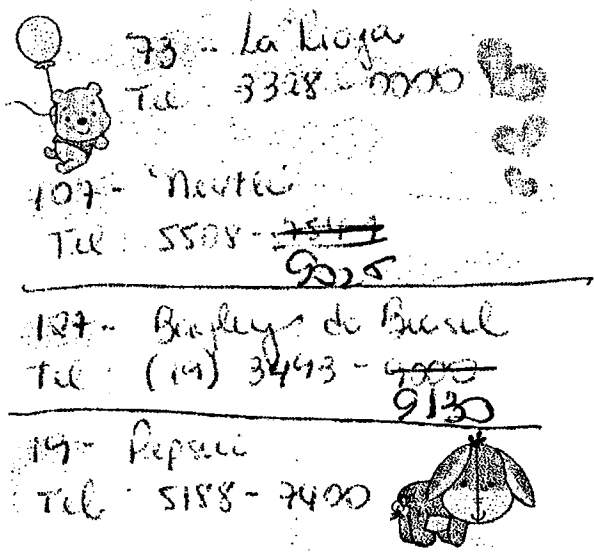 73 - La Rioja
Tel 3328-9900
107- Nestlé
Tel: 5508-
9025
127- Bagleys do Brasil
Tel: (19) 3493 - 9000
9130
19- Pepsico
Tel: 5188-7400